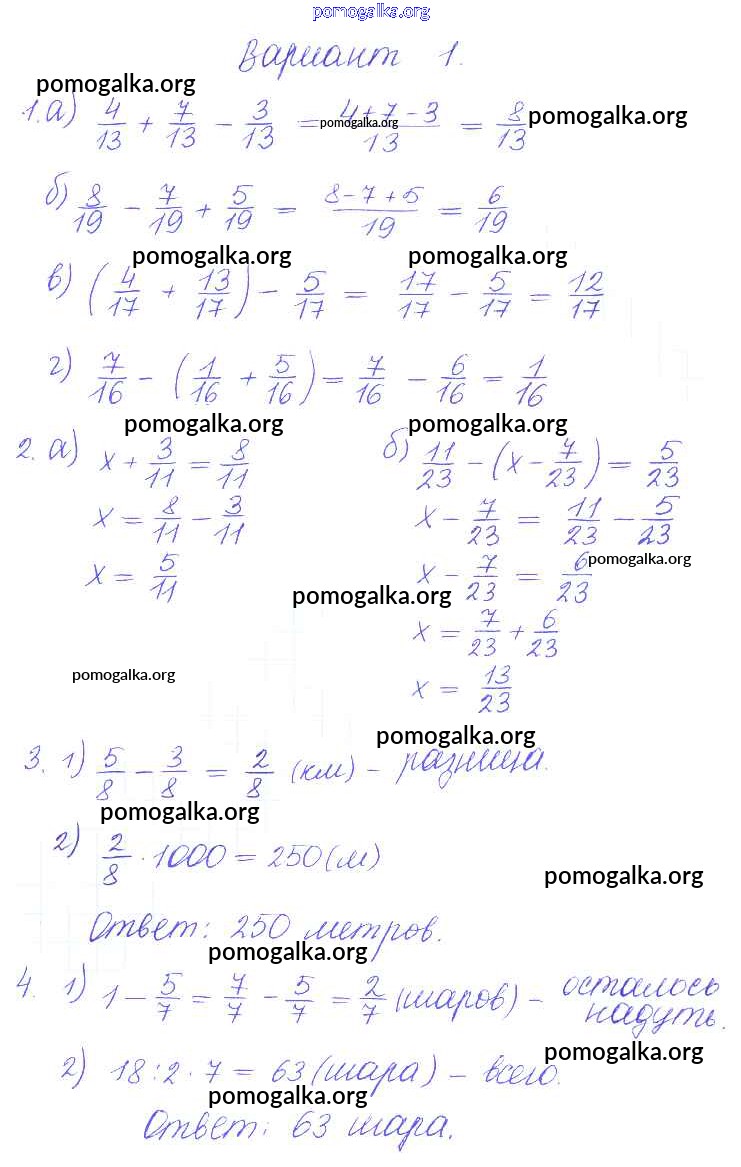 pomogalka.org
Вариант 1.
pomogalka.org
1. а) 4/13 + 7/13 - 3/13 = (4+7-3)/13 = 8/13 pomogalka.org
pomogalka.org
б) 8/19 - 7/19 + 5/19 = (8-7+5)/19 = 6/19
pomogalka.org pomogalka.org
в) (4/17 + 13/17) - 5/17 = 17/17 - 5/17 = 12/17
г) 7/16 - (1/16 + 5/16) = 7/16 - 6/16 = 1/16
pomogalka.org pomogalka.org
2. а) x + 3/11 = 8/11 б) 11/23 - (x - 7/23) = 5/23
x = 8/11 - 3/11 x - 7/23 = 11/23 - 5/23
x = 5/11 x - 7/23 = 6/23 pomogalka.org
pomogalka.org
x = 7/23 + 6/23
pomogalka.org
x = 13/23
pomogalka.org
3. 1) 5/8 - 3/8 = 2/8 (км) - разница.
pomogalka.org
2) 2/8 · 1000 = 250 (м)
pomogalka.org
Ответ: 250 метров.
pomogalka.org
4. 1) 1 - 5/7 = 7/7 - 5/7 = 2/7 (шаров) - осталось
надуть.
pomogalka.org
2) 18 : 2 · 7 = 63 (шара) - всего.
pomogalka.org
Ответ: 63 шара.